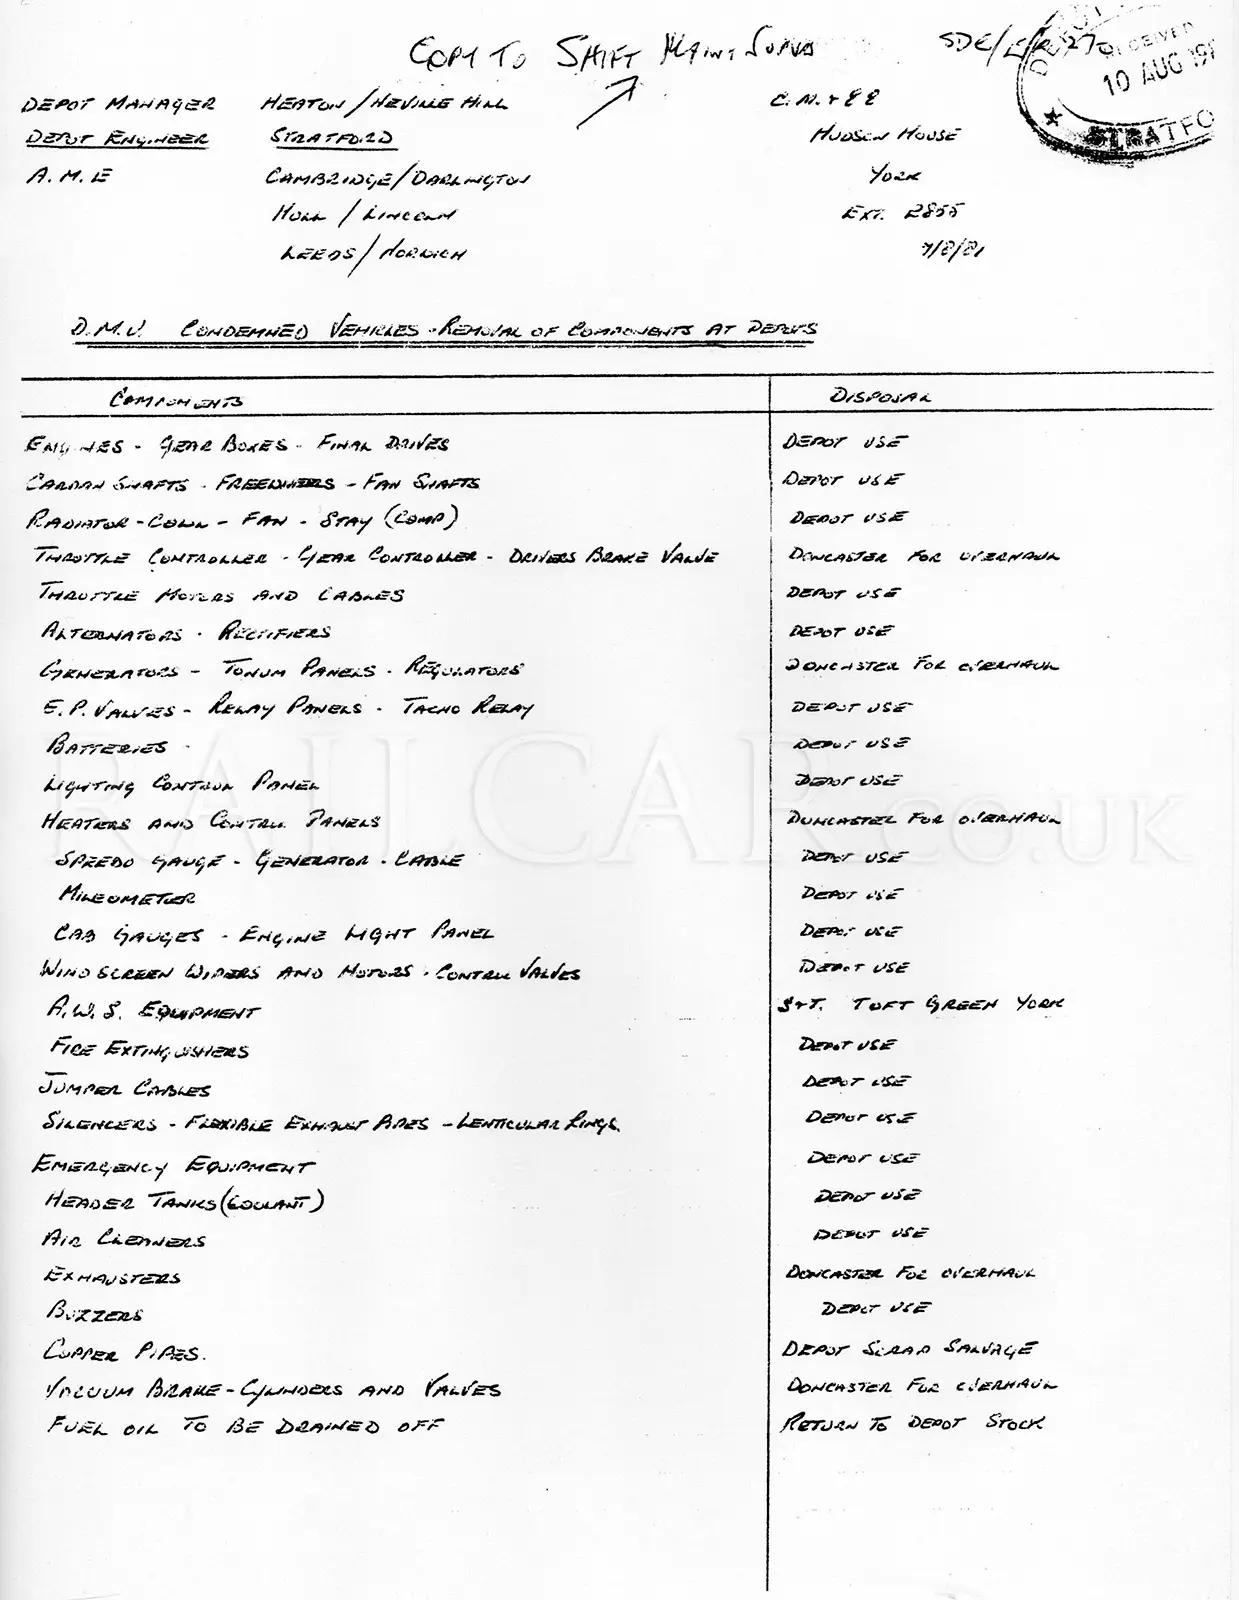 COPY TO SHIFT MAINT SUPVS
SDE/
RECEIVED
10 AUG 198
STRATFO
DEPOT MANAGER HEATON/NEVILLE HILL C.M. & E E
DEPOT ENGINEER STRATFORD HUDSON HOUSE
A.M.E CAMBRIDGE/DARLINGTON YORK
HULL / LINCOLN EXT. 2855
LEEDS/NORWICH 7/8/81
D.M.U. CONDEMNED VEHICLES - REMOVAL OF COMPONENTS AT DEPOTS
COMPONENTS DISPOSAL
ENGINES - GEAR BOXES - FINAL DRIVES DEPOT USE
CARDAN SHAFTS - FREEWHEELS - FAN SHAFTS DEPOT USE
RADIATOR - COWL - FAN - STAY (COMP) DEPOT USE
THROTTLE CONTROLLER - GEAR CONTROLLER - DRIVERS BRAKE VALVE DONCASTER FOR OVERHAUL
THROTTLE MOTORS AND CABLES DEPOT USE
ALTERNATORS - RECTIFIERS DEPOT USE
GENERATORS - TONUM PANELS - REGULATORS DONCASTER FOR OVERHAUL
E.P. VALVES - RELAY PANELS - TACHO RELAY DEPOT USE
BATTERIES - DEPOT USE
LIGHTING CONTROL PANEL DEPOT USE
HEATERS AND CONTROL PANELS DONCASTER FOR OVERHAUL
SPEEDO GAUGE - GENERATOR - CABLE DEPOT USE
MILEOMETER DEPOT USE
CAB GAUGES - ENGINE LIGHT PANEL DEPOT USE
WIND SCREEN WIPERS AND MOTORS - CONTROL VALVES DEPOT USE
A.W.S. EQUIPMENT S&T. TOFT GREEN YORK
FIRE EXTINGUISHERS DEPOT USE
JUMPER CABLES DEPOT USE
SILENCERS - FLEXIBLE EXHAUST PIPES - LENTICULAR RINGS DEPOT USE
EMERGENCY EQUIPMENT DEPOT USE
HEADER TANKS (COOLANT) DEPOT USE
AIR CLEANERS DEPOT USE
EXHAUSTERS DONCASTER FOR OVERHAUL
BUZZERS DEPOT USE
COPPER PIPES. DEPOT SCRAP SALVAGE
VACUUM BRAKE - CYLINDERS AND VALVES DONCASTER FOR OVERHAUL
FUEL OIL TO BE DRAINED OFF RETURN TO DEPOT STOCK
RAILCAR.CO.UK